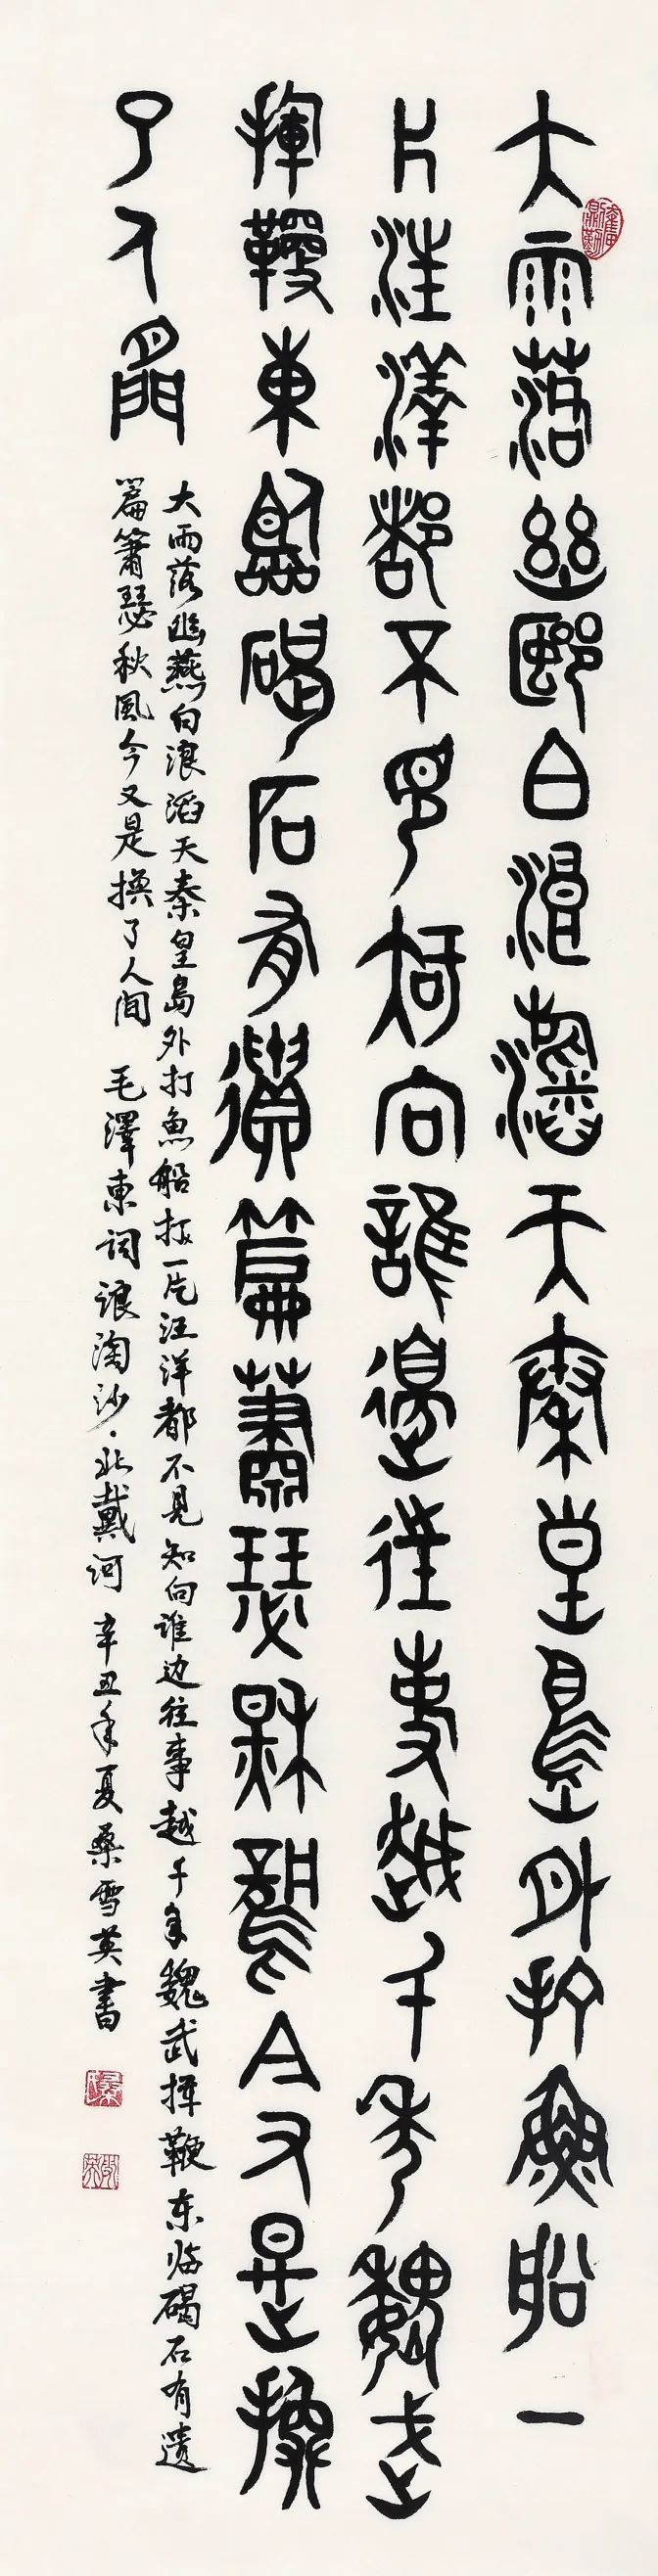 大雨落幽燕白浪滔天秦皇島外打魚船一
片汪洋都不見知向誰邊往事越千年魏武
揮鞭東臨碣石有遺篇蕭瑟秋風今又是換
了人間
大雨落幽燕白浪滔天秦皇島外打魚船一片汪洋都不見知向谁边往事越千年魏武揮鞭东临碣石有遗
篇簫瑟秋風今又是換了人间 毛澤東词浪淘沙·北戴河 辛丑年夏桑雪英書